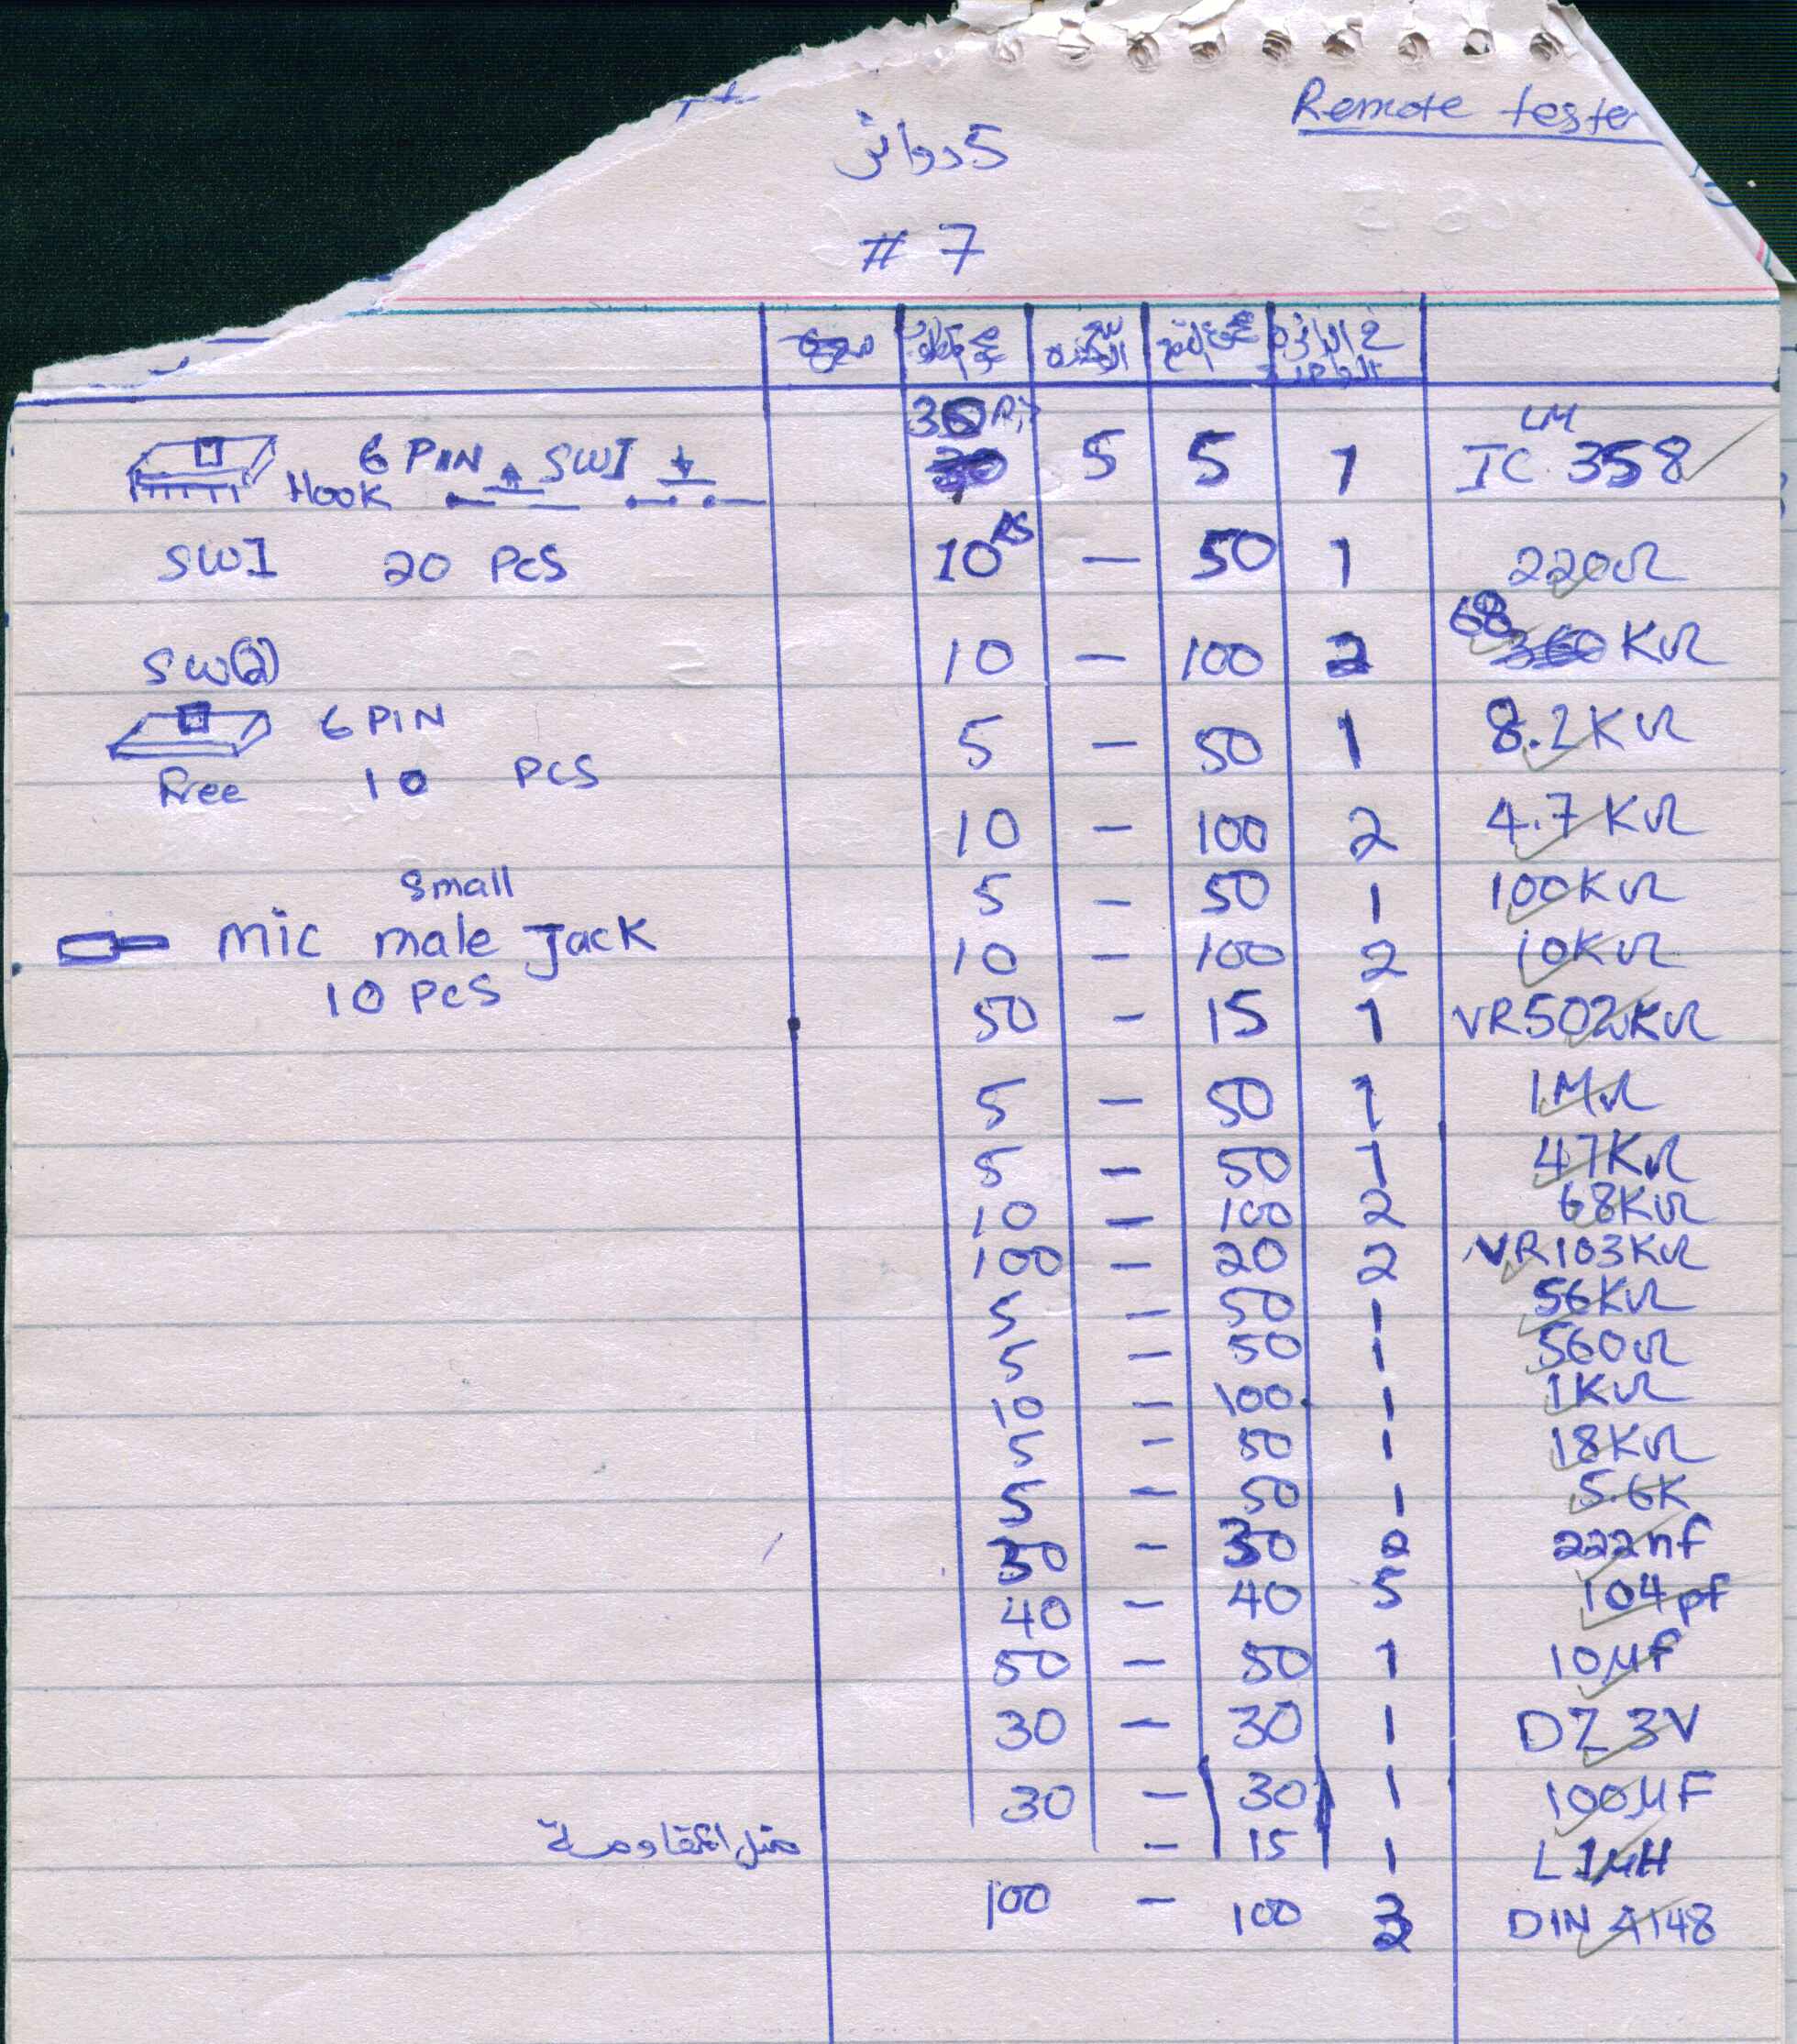 Remote tester
5 دوائر
# 7
في الدائرة الواحدة
IC LM 358 1 5 5 30 Rs
220Ω 1 50 — 10 RS
68 KΩ 2 100 — 10
8.2KΩ 1 50 — 5
4.7KΩ 2 100 — 10
100KΩ 1 50 — 5
10KΩ 2 100 — 10
VR502KΩ 1 15 — 50
1MΩ 1 50 — 5
47KΩ 1 50 — 5
68KΩ 2 100 — 10
VR103KΩ 2 20 — 100
56KΩ 1 50 — 5
560Ω 1 50 — 5
1KΩ 1 100 — 10
18KΩ 1 50 — 5
5.6K 1 50 — 5
222nf 2 30 — 30
104pf 5 40 — 40
10µf 1 50 — 50
DZ 3V 1 30 — 30
100µF 1 30 — 30
L 1µH 1 15 — مثل المقاومة
DIN 4148 3 100 — 100
6 PIN SWI
Hook
SWI 20 PCS
SW(2)
6 PIN
Free 10 PCS
small
mic male Jack
10 PCS